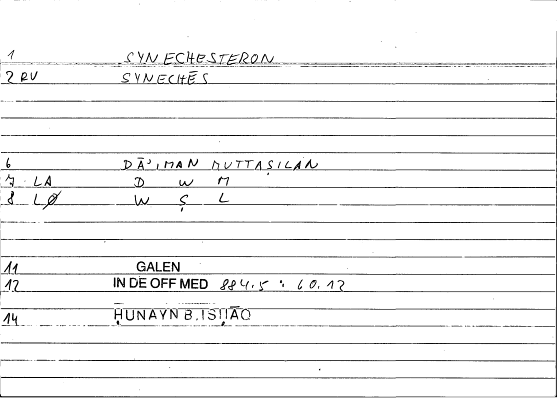 1 SYNECHESTERON
2 RV SYNECHĒS
6 DĀʾIMAN MUTTAṢILAN
7 LA D W M
8 LØ W Ṣ L
11 GALEN
12 IN DE OFF MED 884.5 : 60.12
14 ḤUNAYN B. ISḤĀQ